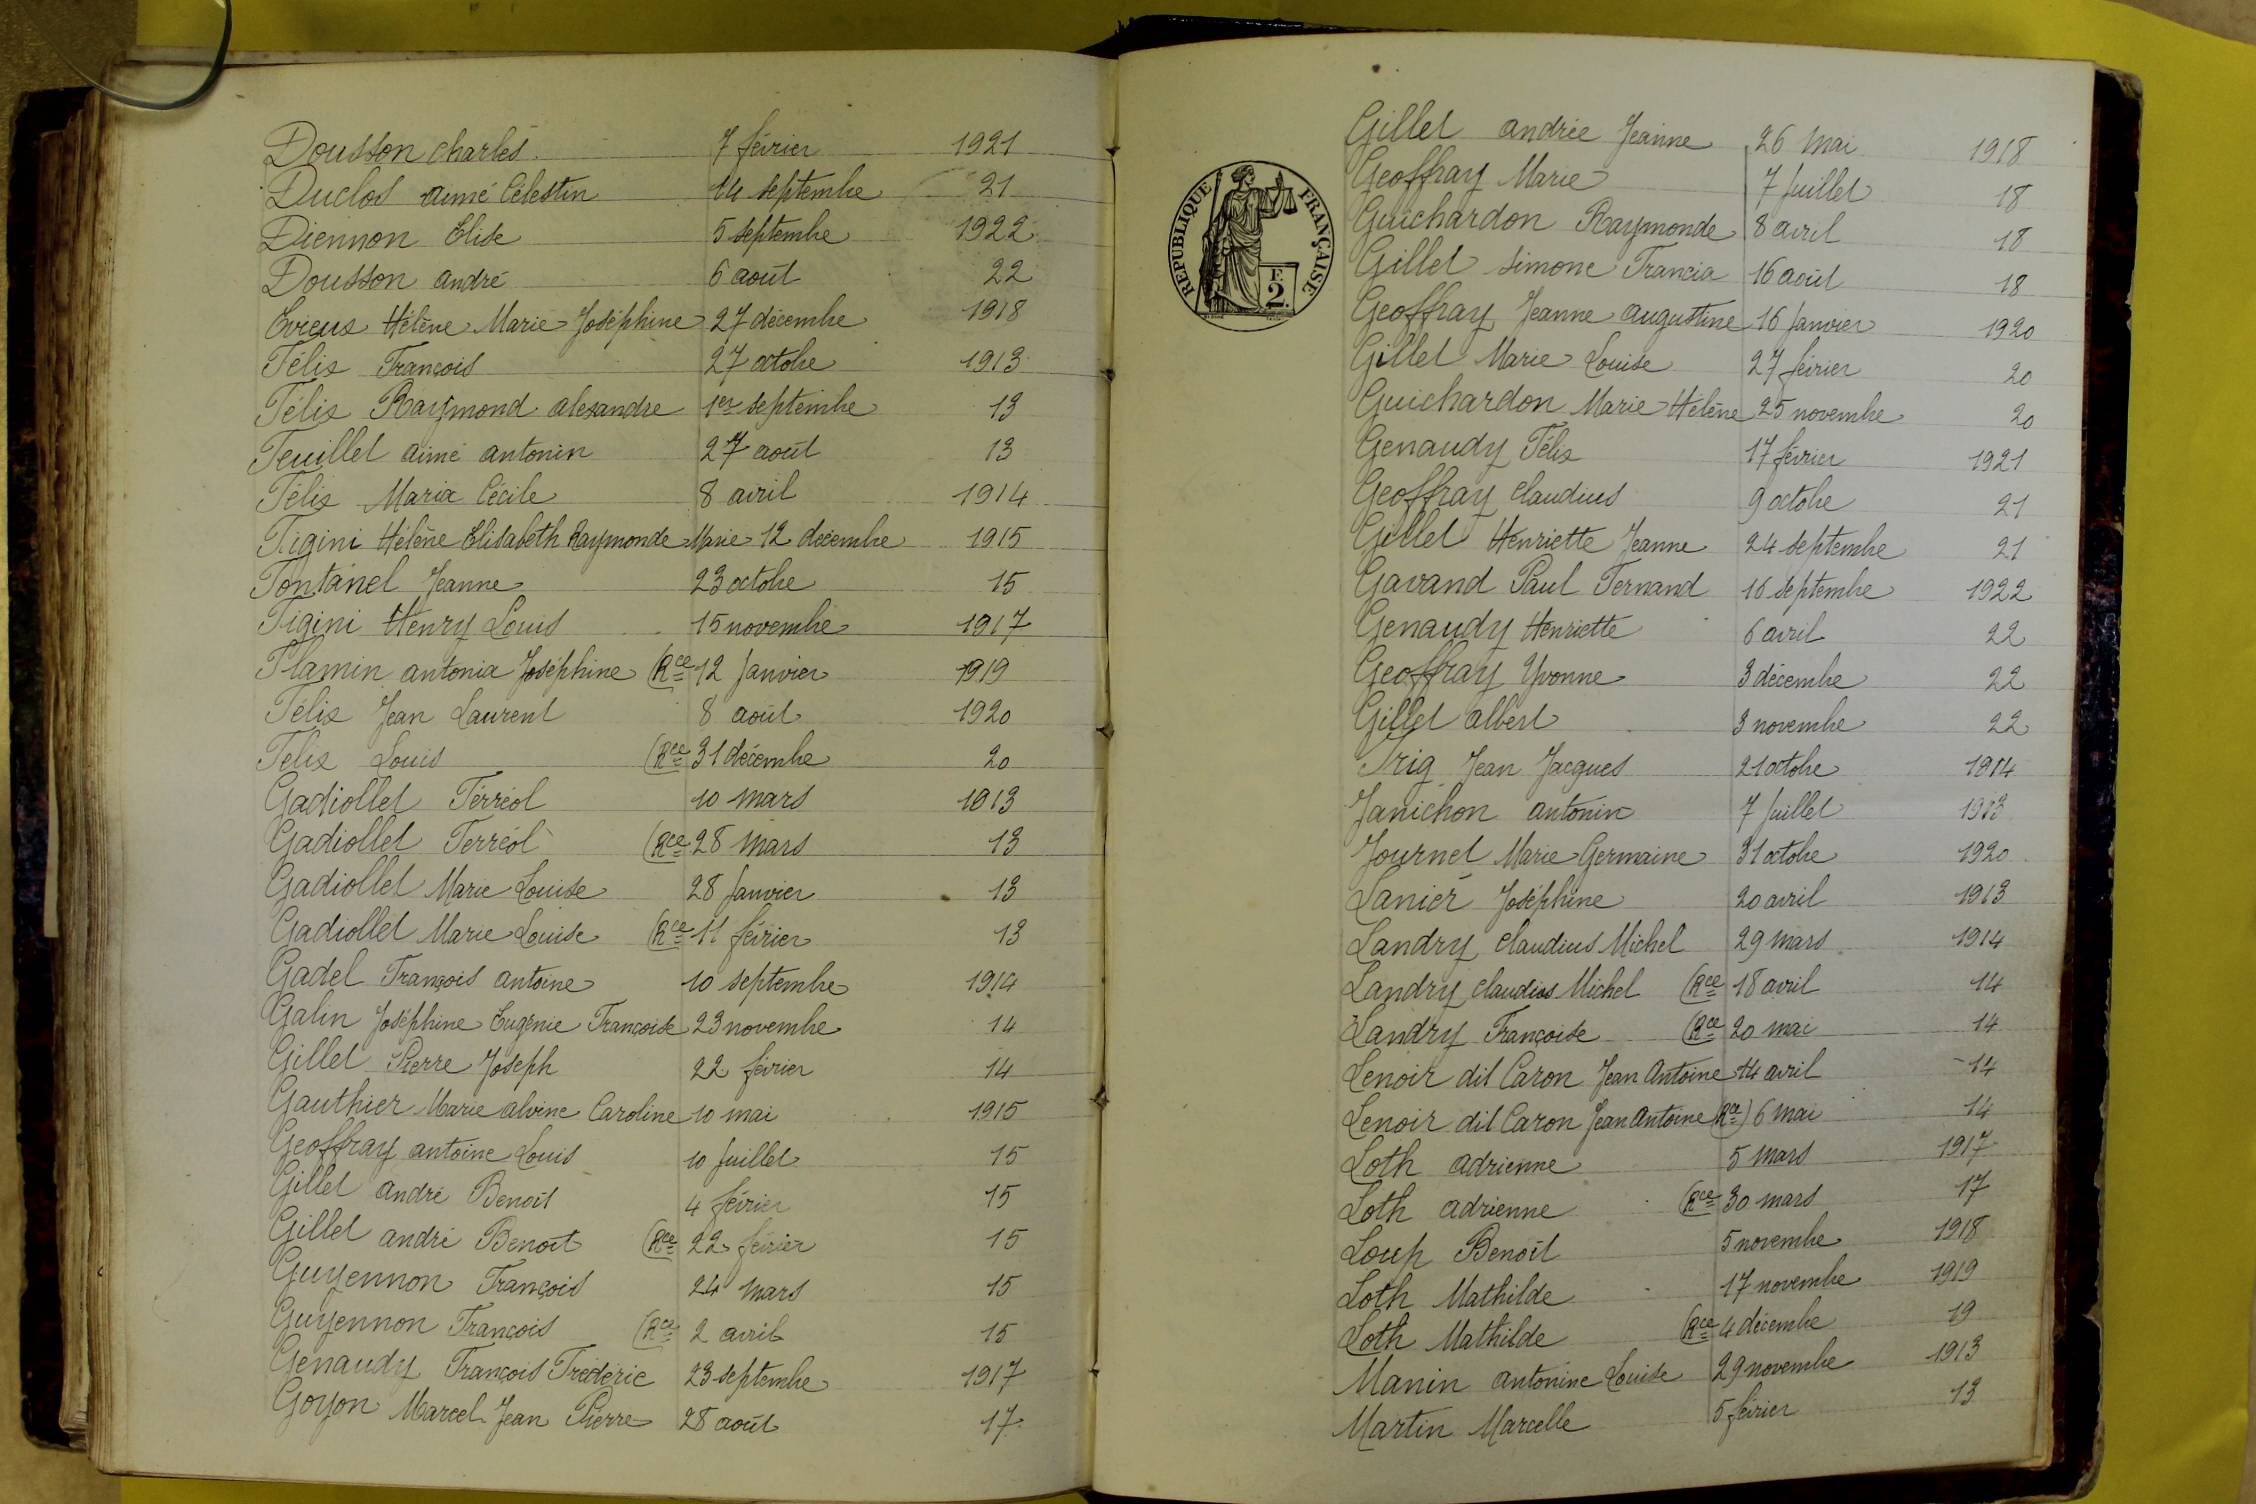 Dousson Charles 7 février 1921
Duclos aimé Célestin 14 septembre 21
Diennon Elise 5 septembre 1922
Dousson andré 6 août 22
Evieux Hélène Marie Joséphine 27 décembre 1918
Félix François 27 octobre 1913
Félix Raymond alexandre 1er septembre 13
Feuillet aimé antonin 27 août 13
Félix Maria Cécile 8 avril 1914
Figini Hélène Elisabeth Raymonde Marie 12 décembre 1915
Fontanel Jeanne 23 octobre 15
Figini Henry Louis 15 novembre 1917
Flamin antonia Joséphine (Rce 12 Janvier 1919
Félix Jean Laurent 8 août 1920
Félix Louis (Rce 31 décembre 20
Gadiollet Ferréol 10 mars 1913
Gadiollet Ferréol (Rce 28 mars 13
Gadiollet Marie Louise 28 Janvier 13
Gadiollet Marie Louise (Rce 11 février 13
Gadel François antoine 10 septembre 1914
Galin Joséphine Eugénie Françoise 23 novembre 14
Gillet Pierre Joseph 22 février 14
Gauthier Marie alvine Caroline 10 mai 1915
Geoffray antoine Louis 10 Juillet 15
Gillet andré Benoît 4 février 15
Gillet andré Benoît (Rce 22 février 15
Guyennon François 24 mars 15
Guyennon François (Rce 2 avril 15
Genaudy François Frédéric 23 septembre 1917
Goyon Marcel Jean Pierre 28 août 17
RÉPUBLIQUE FRANÇAISE
F.
2.
Gillet andrée Jeanne 26 Mai 1918
Geoffray Marie 7 Juillet 18
Guichardon Raymonde 8 avril 18
Gillet Simone Francia 16 août 18
Geoffray Jeanne augustine 16 Janvier 1920
Gillet Marie Louise 27 février 20
Guichardon Marie Hélène 25 novembre 20
Genaudy Félix 17 février 1921
Geoffray Claudius 9 octobre 21
Gillet Henriette Jeanne 24 septembre 21
Gavand Paul Fernand 16 septembre 1922
Genaudy Henriette 6 avril 22
Geoffray Yvonne 3 décembre 22
Gillet albert 3 novembre 22
Jean Jacques 21 octobre 1914
Janichon antonin 7 Juillet 1913
Journet Marie Germaine 31 octobre 1920
Lanier Joséphine 20 avril 1913
Landry Claudius Michel 29 mars 1914
Landry Claudius Michel (Rce 18 avril 14
Landry Françoise (Rce 20 mai 14
Lenoir dit Caron Jean Antoine 14 avril 14
Lenoir dit Caron Jean Antoine (Rce) 6 Mai 14
Loth adrienne 5 mars 1917
Loth adrienne (Rce 30 mars 17
Loup Benoît 5 novembre 1918
Loth Mathilde 17 novembre 1919
Loth Mathilde (Rce 4 décembre 19
Manin antonine Louise 29 novembre 1913
Martin Marcelle 5 février 13